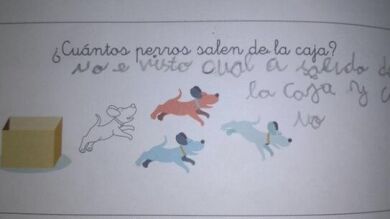 ¿Cuántos perros salen de la caja?
no e visto cual a salido de
la caja y
no